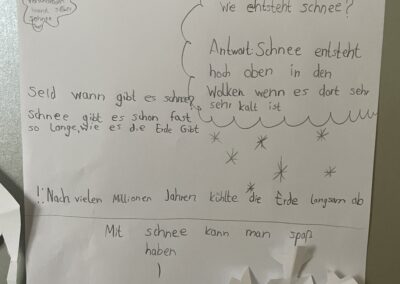 Wie entsteht schnee?
Antwort: Schnee entsteht
hoch oben in den
Wolken wenn es dort sehr
sehr kalt ist
Seid wann gibt es schnee?
Schnee gibt es schon fast
so lange, wie es die Erde Gibt
!: Nach vielen Millionen Jahren kühlte die Erde langsam ab
Mit schnee kann man spaß
haben